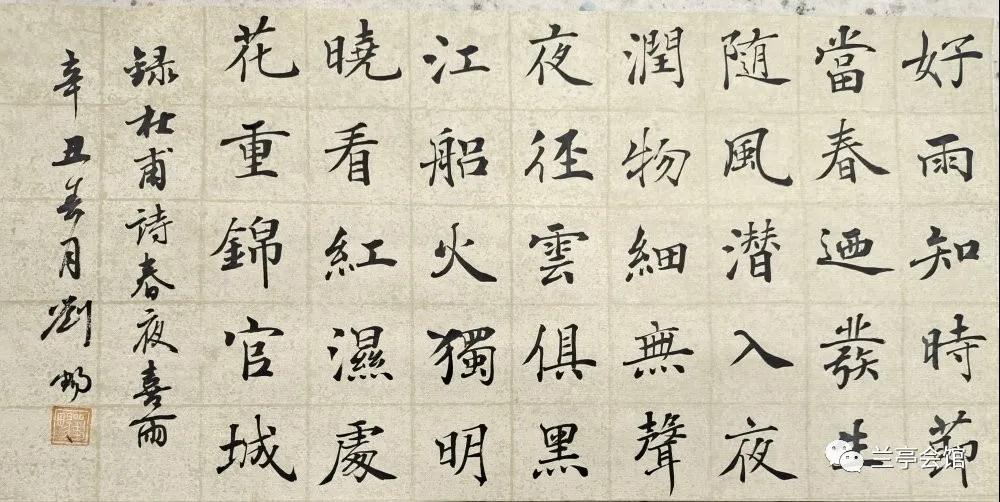 好雨知時節
當春迺發生
随風潜入夜
潤物細無聲
夜径雲俱黑
江船火獨明
曉看紅濕處
花重錦官城
録杜甫詩春夜喜雨
辛丑春月劉
兰亭会馆